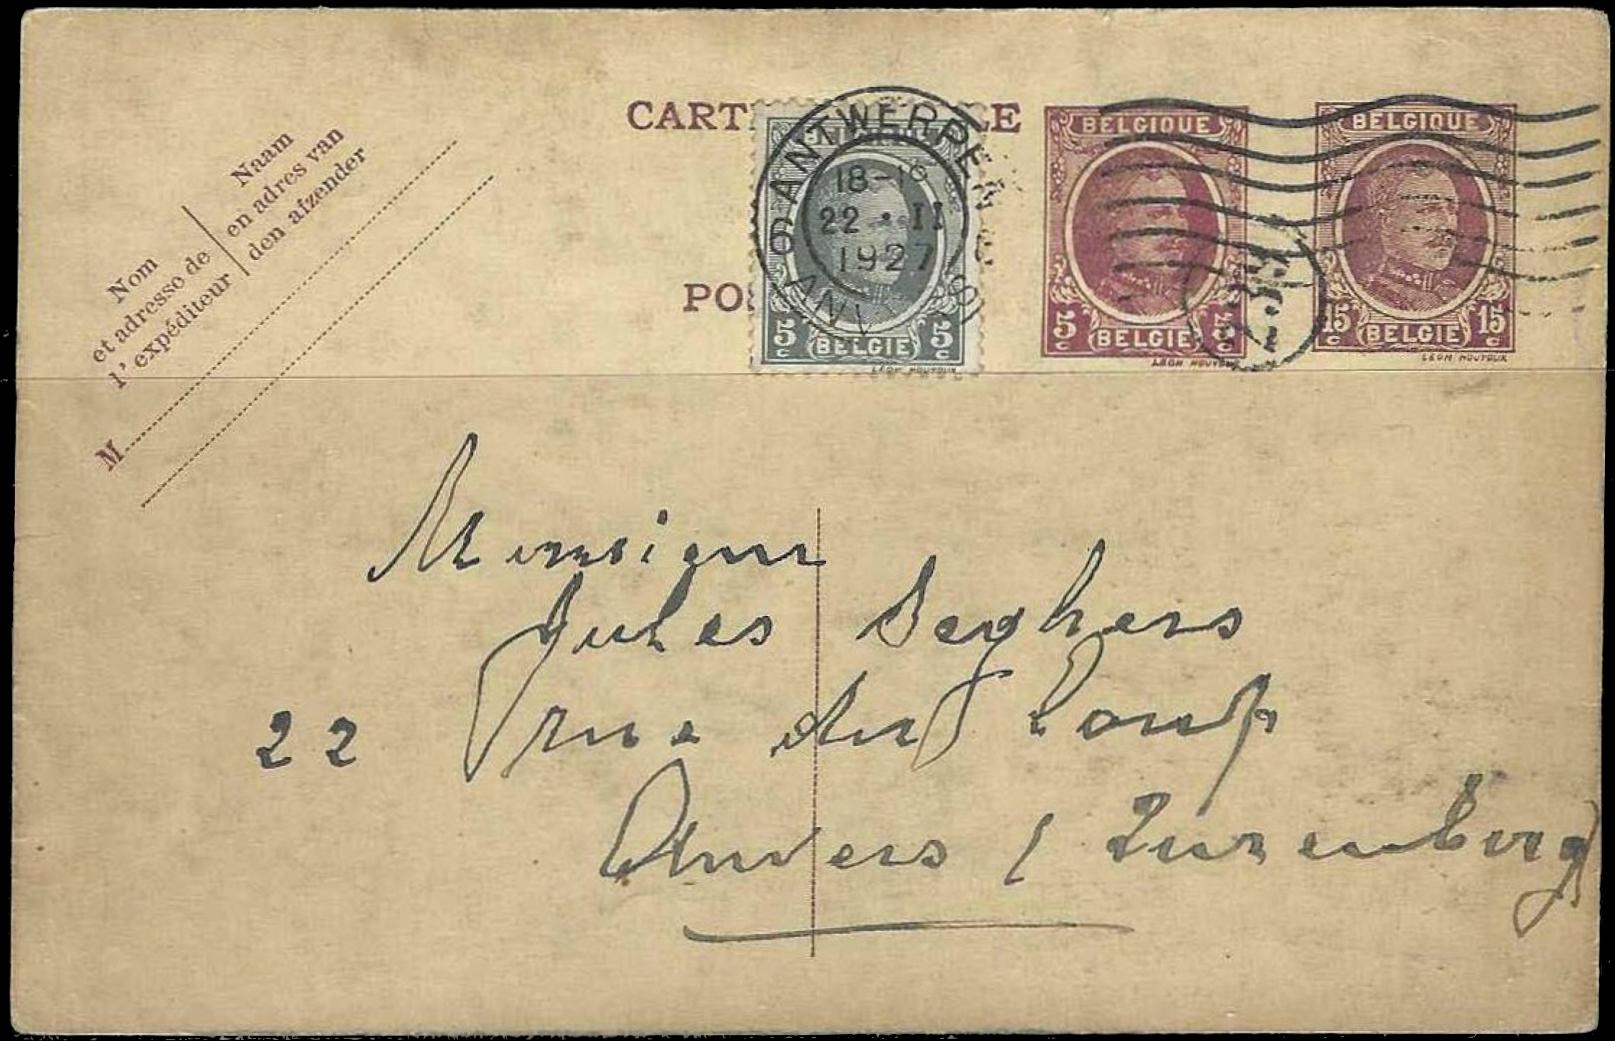 CART LE
PO
Nom
et adresse de
l'expéditeur
Naam
en adres van
den afzender
M
6 ANTWERPEN 6
18-19
22 · II
1927
ANV
5 5
c c
BELGIE
LÉON HOUYOUX
BELGIQUE
5 5
c c
BELGIE
LÉON HOUYOUX
BELGIQUE
15 15
c c
BELGIE
LÉON HOUYOUX
Monsieur
Jules Seghers
22 rue du Loup
Anvers / Zurenborg